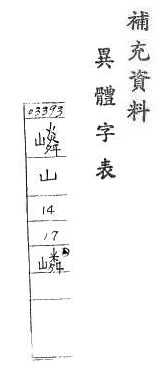 補充資料
異體字表
03393
山
14
17
嶙